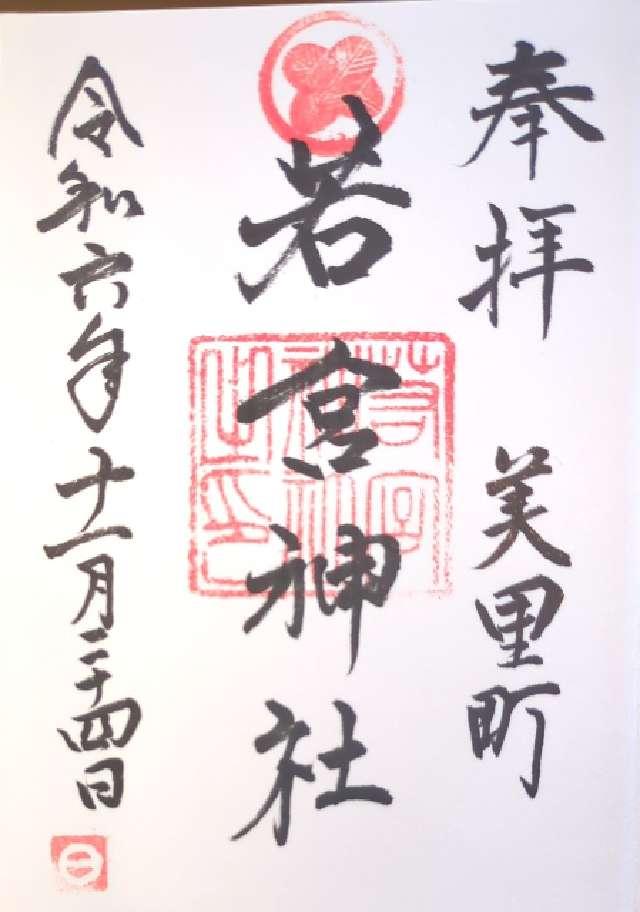 奉拝 美里町
若宮神社
若宮神社之印
令和六年十一月二十四日